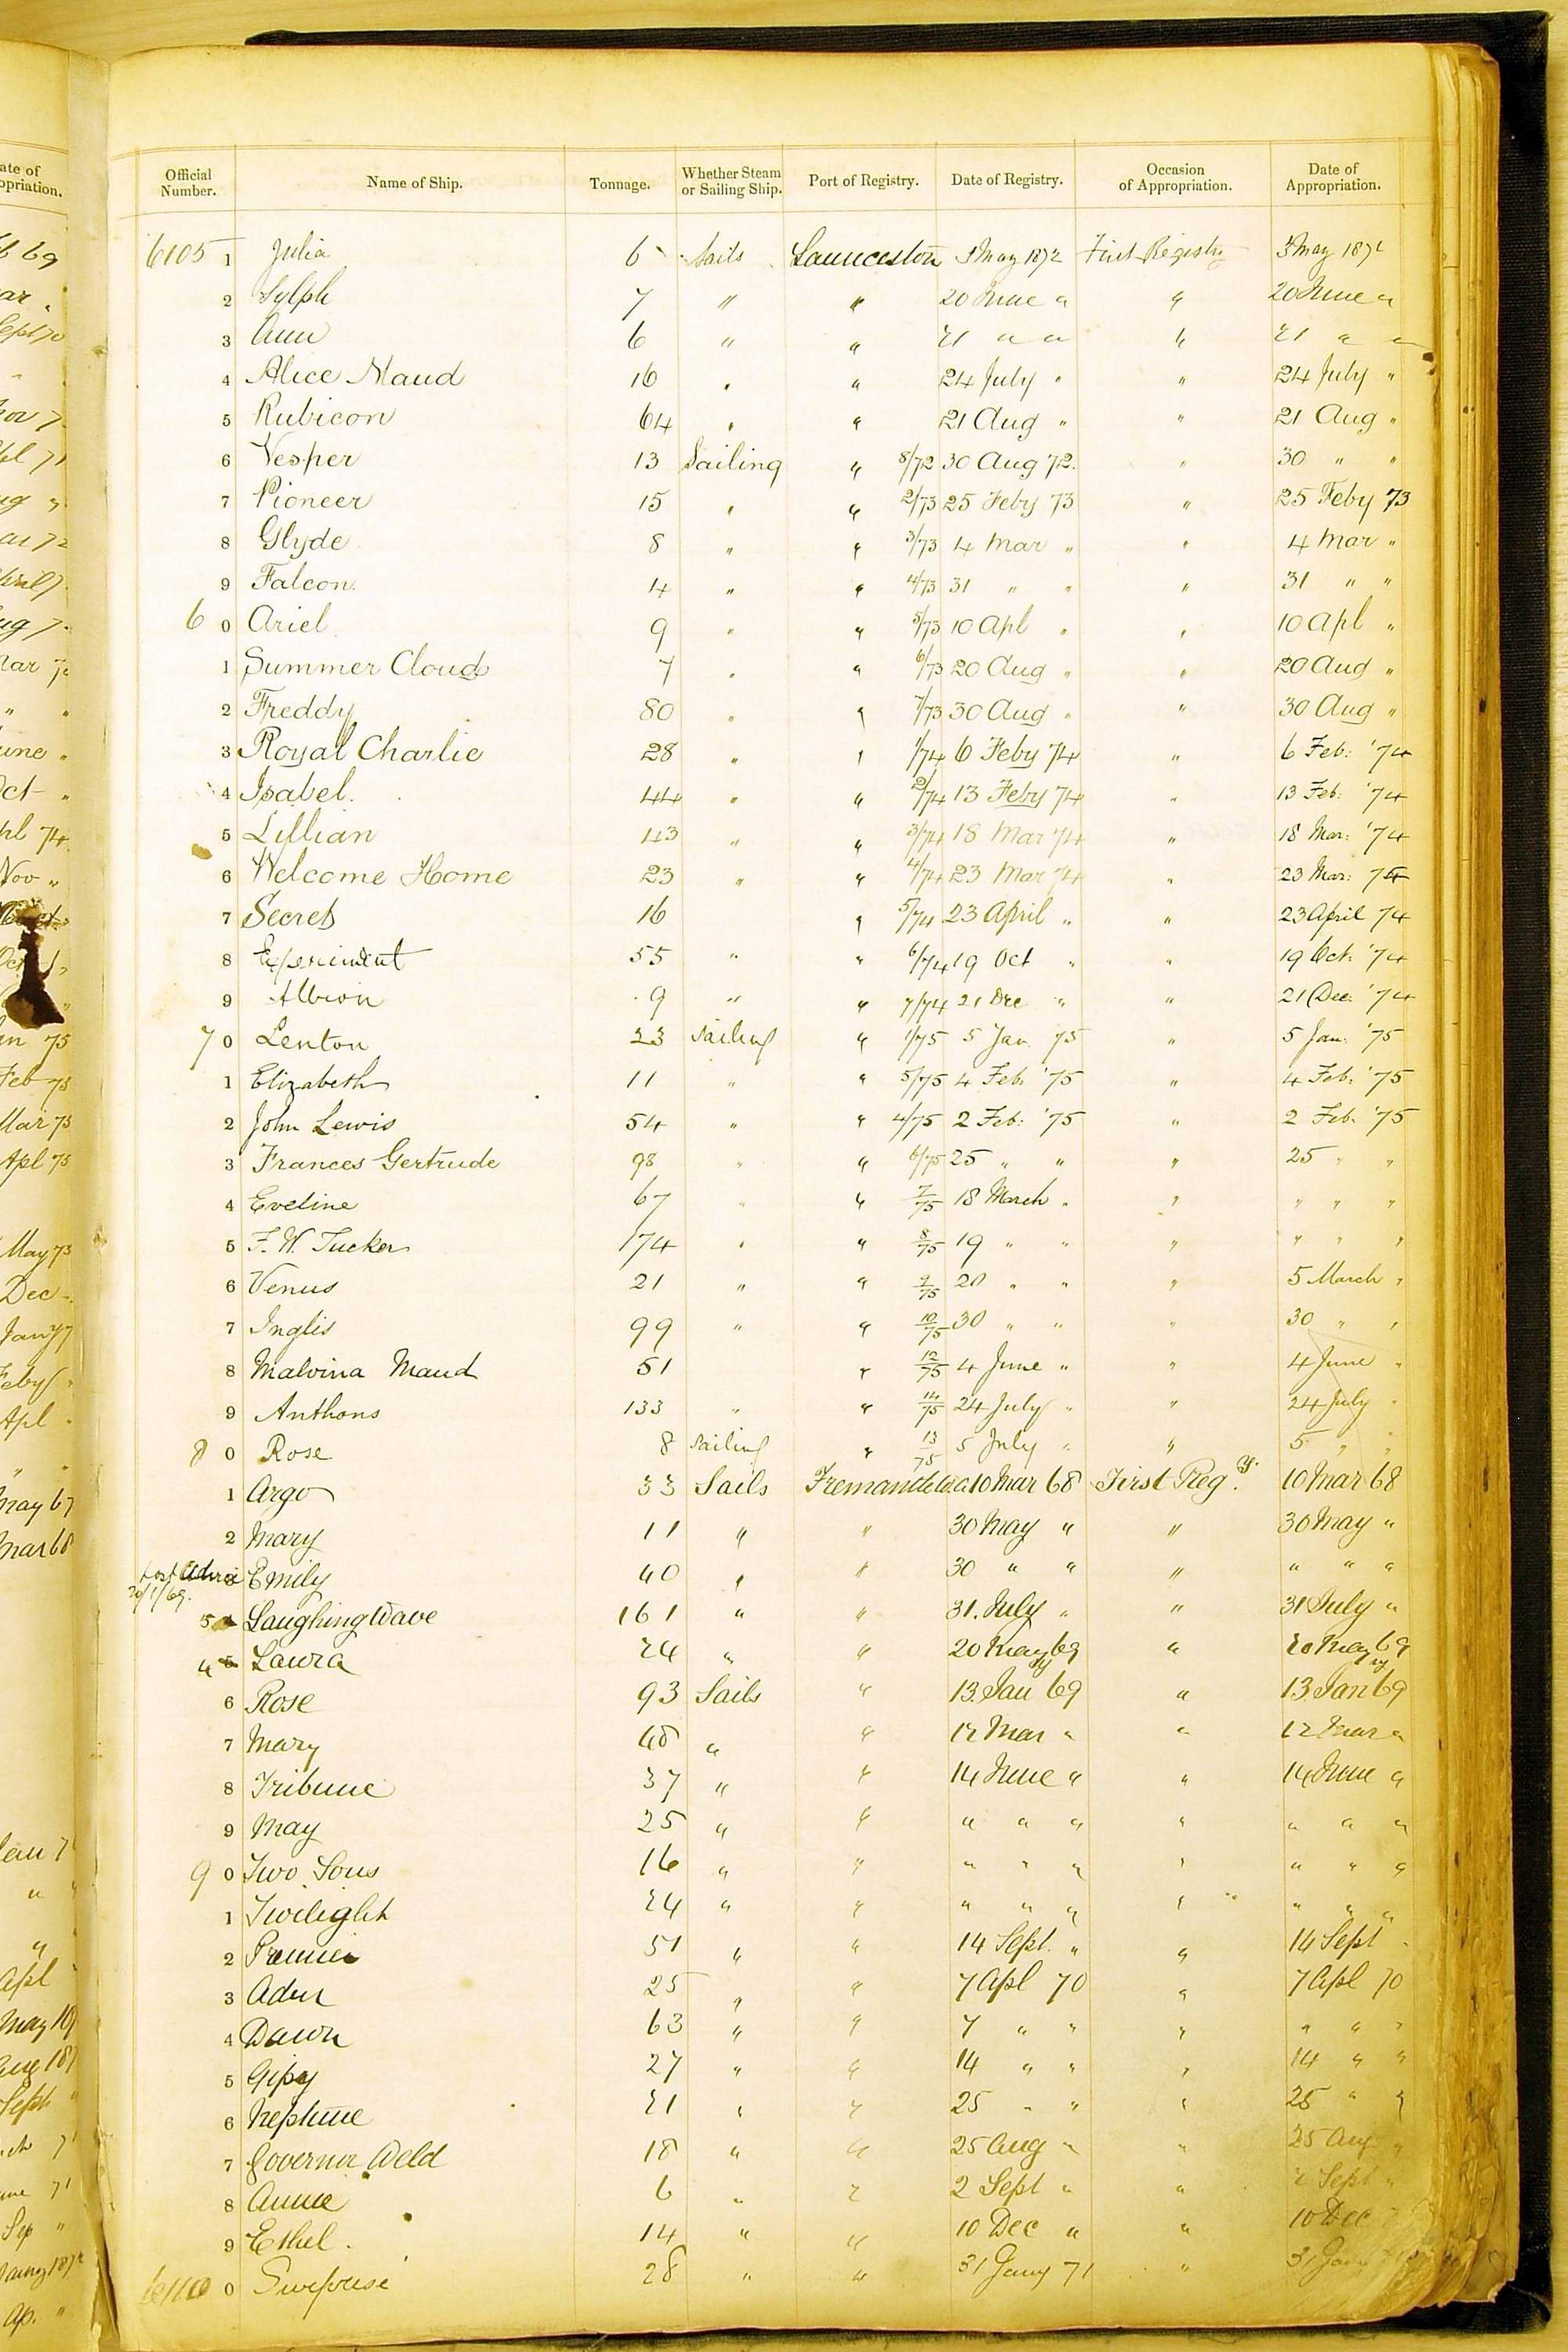 Official Number. Name of Ship. Tonnage. Whether Steam or Sailing Ship. Port of Registry. Date of Registry. Occasion of Appropriation. Date of Appropriation.
6105 1 Julia 6 Sails Launceston 3 May 1872 First Registry 3 May 1872
2 Sylph 7 " " 20 June " " 20 June "
3 Ann 6 " " 21 " " " 21 " "
4 Alice Maud 16 " " 24 July " " 24 July "
5 Rubicon 64 " " 21 Aug " " 21 Aug "
6 Vesper 13 Sailing " 8/72 30 Aug '72. " 30 " "
7 Pioneer 15 " " 2/73 25 Feby '73 " 25 Feby '73
8 Glyde 8 " " 3/73 4 Mar " " 4 Mar "
9 Falcon 4 " " 4/73 31 " " " 31 " "
6 0 Ariel 9 " " 5/73 10 Apl " " 10 Apl "
1 Summer Cloud 7 " " 6/73 20 Aug " " 20 Aug "
2 Freddy 80 " " 7/73 30 Aug " " 30 Aug "
3 Royal Charlie 28 " " 1/74 6 Feby 74 " 6 Feb: '74
4 Isabel. 44 " " 2/74 13 Feby 74 " 13 Feb: '74
5 Lillian 43 " " 3/74 18 Mar 74 " 18 Mar: '74
6 Welcome Home 23 " " 4/74 23 Mar 74 " 23 Mar: 74
7 Secret 16 " 5/74 23 April " " 23 April 74
8 Experiment 55 " " 6/74 19 Oct " " 19 Oct: '74
9 Albion 9 " " 7/74 21 Dec " " 21 Dec: '74
7 0 Lenton 23 Sailing " 1/75 5 Jan. 75 " 5 Jan: '75
1 Elizabeth 11 " " 5/75 4 Feb: '75 " 4 Feb: '75
2 John Lewis 54 " " 4/75 2 Feb: '75 " 2 Feb. '75
3 Frances Gertrude 98 " " 6/75 25 " " " 25 " "
4 Eveline 67 " " 7/75 18 March " " " " "
5 F. W. Tucker 174 " " 8/75 19 " " " " " "
6 Venus 21 " " 9/75 20 " " " 5 March "
7 Inglis 99 " " 10/75 30 " " " 30 " "
8 Malvina Maud 51 " 12/75 4 June " " 4 June "
9 Anthons 133 " " 14/75 24 July " " 24 July "
8 0 Rose 8 Sailing " 13/75 5 July " " 5 " "
1 Argo 33 Sails Fremantle W.A 10 Mar 68 First Regy. 10 Mar 68
2 Mary 11 " " 30 May " " 30 May "
20/1/69. Emily 40 " " 30 " " " " " "
5 Laughing Wave 161 " " 31. July " " 31 July "
4 Laura 24 " " 20 69 " 20 69
6 Rose 93 Sails " 13. Jan 69 " 13. Jan 69
7 Mary 48 " " 12 Mar " " 12 Mar "
8 Tribune 37 " " 14 June " " 14 June "
9 May 25 " " " " " " " " "
9 0 Two Sons 16 " " " " " " " " "
1 Twilight 24 " " " " " " " " "
2 Premier 51 " " 14 Sept. " " 14 Sept "
3 Aden 25 " " 7 Apl 70 " 7 Apl 70
4 Dawn 63 " " 7 " " " " " "
5 Gipsy 27 " " 14 " " " 14 " "
6 Neptune 21 " " 25 " " " 25 " "
7 Governor Weld 18 " " 25 Aug " " 25 Aug
8 Annie 6 " " 2 Sept " " 2 Sept "
9 Ethel. 14 " " 10 Dec " " 10 Dec
0 Surprise 28 " " 31 Jany 71 " 31 Jany